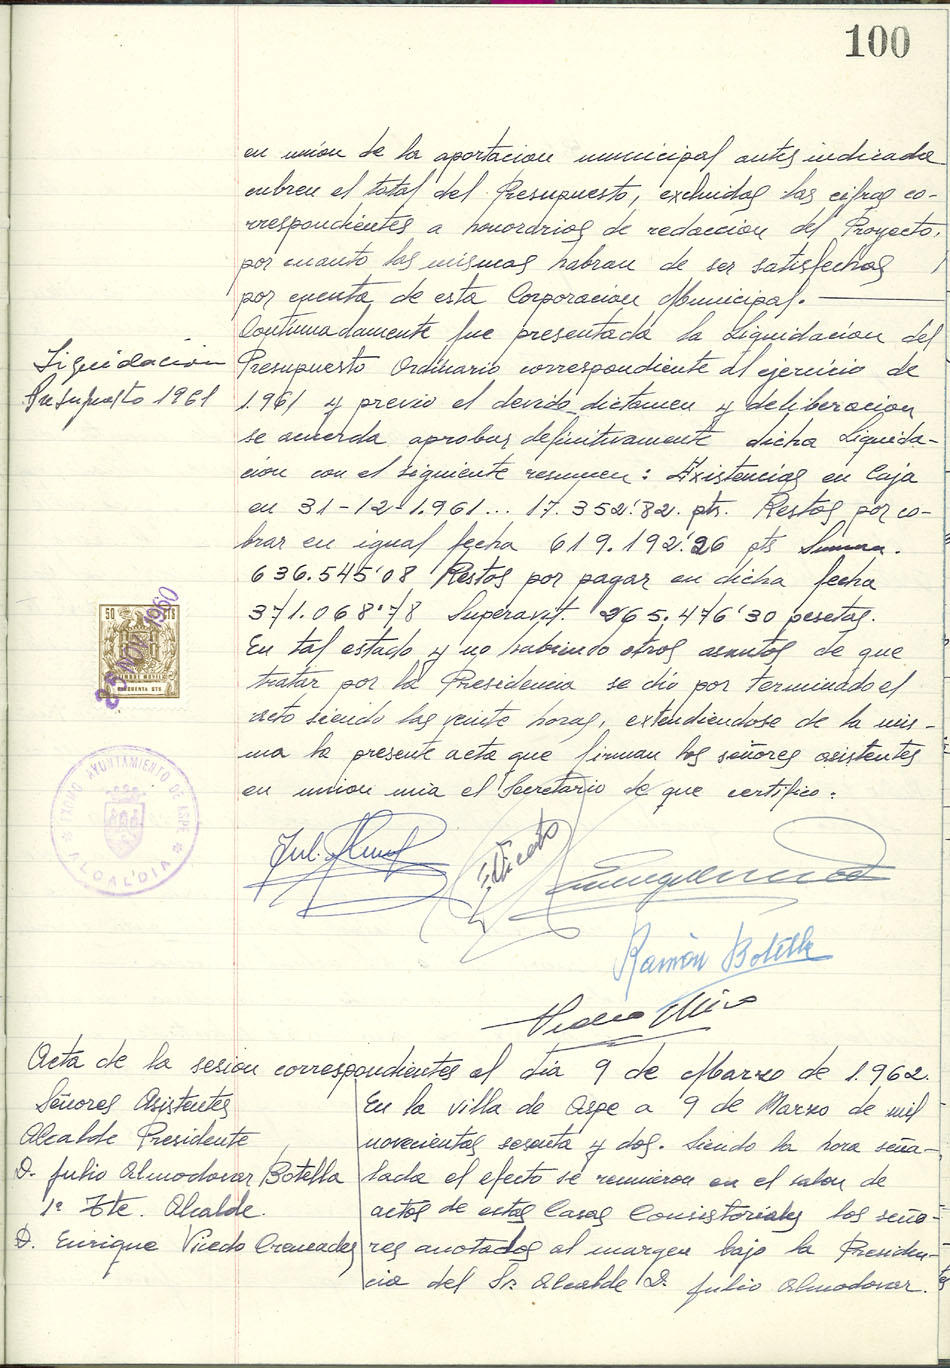 100
en union de la aportacion municipal antes indicada
cubren el total del Presupuesto, excluidas las cifras co-
rrespondientes a honorarios de redaccion del Proyecto,
por cuanto las mismas habran de ser satisfechas
por cuenta de esta Corporacion Municipal.
Liquidacion
Presupuesto 1961
Continuadamente fue presentada la Liquidacion del
Presupuesto Ordinario correspondiente al ejercicio de
1.961 y previo el devido dictamen y deliberacion
se acuerda aprobar definitivamente dicha Liquida-
cion con el siguiente resumen: Existencias en Caja
en 31-12-1.961... 17.352'82. pts. Restos por co-
brar en igual fecha 619.192'26 pts Suman.
636.545'08 Restos por pagar en dicha fecha
371.068'78 Superavit. 265.476'30 pesetas.
En tal estado y no habiendo otros asuntos de que
tratar por la Presidencia se dio por terminado el
acto siendo las veinte horas, extendiendose de la mis-
ma la presente acta que firman los señores asistentes
en union mia el Secretario de que certifico:
50 CTS
TIMBRE MOVIL
CINCUENTA CTS
23 NOV 1960
EXCMO AYUNTAMIENTO DE ASPE
* ALCALDIA *
Jul. Almod
E Vicedo
Ramón Botella
Miro
Acta de la sesion correspondientes al dia 9 de Marzo de 1.962.
Señores Asistentes
Alcalde Presidente
D. Julio Almodovar Botella
1º Tte. Alcalde.
D. Enrique Vicedo Cremades
En la villa de Aspe a 9 de Marzo de mil
novecientos sesenta y dos. Siendo la hora seña-
lada el efecto se reunieron en el salon de
actos de estas Casas Consistoriales los seño-
res anotados al margen bajo la Presiden-
cia del Sr. Alcalde D. Julio Almodovar.